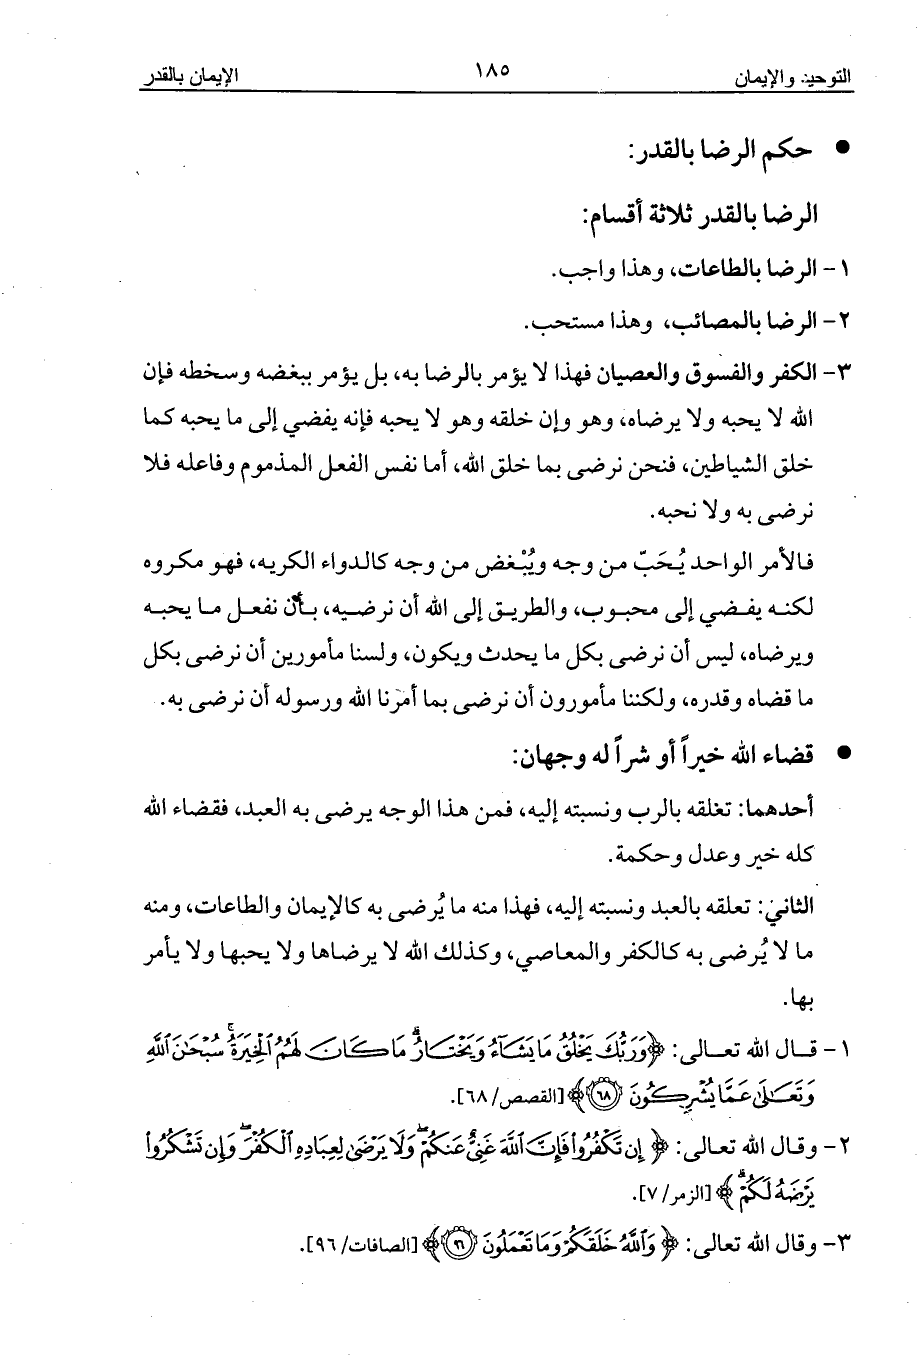 التوحيد والإيمان
١٨٥
الإيمان بالقدر
● حكم الرضا بالقدر:
الرضا بالقدر ثلاثة أقسام:
١- الرضا بالطاعات، وهذا واجب.
٢- الرضا بالمصائب، وهذا مستحب.
٣- الكفر والفسوق والعصيان فهذا لا يؤمر بالرضا به، بل يؤمر ببغضه وسخطه فإن
الله لا يحبه ولا يرضاه، وهو وإن خلقه وهو لا يحبه فإنه يفضي إلى ما يحبه كما
خلق الشياطين، فنحن نرضى بما خلق الله، أما نفس الفعل المذموم وفاعله فلا
نرضى به ولا نحبه.
فالأمر الواحد يُحَبّ من وجه ويُبْغض من وجه كالدواء الكريه، فهو مكروه
لكنه يفضي إلى محبوب، والطريق إلى الله أن نرضيه، بأن نفعل ما يحبه
ويرضاه، ليس أن نرضى بكل ما يحدث ويكون، ولسنا مأمورين أن نرضى بكل
ما قضاه وقدره، ولكننا مأمورون أن نرضى بما أمرنا الله ورسوله أن نرضى به.
● قضاء الله خيراً أو شراً له وجهان:
أحدهما: تعلقه بالرب ونسبته إليه، فمن هذا الوجه يرضى به العبد، فقضاء الله
كله خير وعدل وحكمة.
الثاني: تعلقه بالعبد ونسبته إليه، فهذا منه ما يُرضى به كالإيمان والطاعات، ومنه
ما لا يُرضى به كالكفر والمعاصي، وكذلك الله لا يرضاها ولا يحبها ولا يأمر
بها.
١- قال الله تعالى: ﴿وَرَبُّكَ يَخْلُقُ مَا يَشَآءُ وَيَخْتَارُ ۗ مَا كَانَ لَهُمُ ٱلْخِيَرَةُ ۚ سُبْحَٰنَ ٱللَّهِ
وَتَعَٰلَىٰ عَمَّا يُشْرِكُونَ ٦٨﴾ [القصص/٦٨].
٢- وقال الله تعالى: ﴿إِن تَكْفُرُوا۟ فَإِنَّ ٱللَّهَ غَنِىٌّ عَنكُمْ ۖ وَلَا يَرْضَىٰ لِعِبَادِهِ ٱلْكُفْرَ ۖ وَإِن تَشْكُرُوا۟
يَرْضَهُ لَكُمْ ۗ﴾ [الزمر/٧].
٣- وقال الله تعالى: ﴿وَٱللَّهُ خَلَقَكُمْ وَمَا تَعْمَلُونَ ٩٦﴾ [الصافات/٩٦].